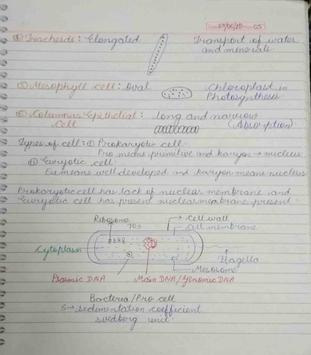 05
Tracheids: Elongated Transport of water
and minerals
Mesophyll cell: oval Chloroplast in
Photosynthesis
Columnar Epithelial: long and narrow
Cell (Absorption)
Types of cell: ① Prokaryotic cell
Pro means primitive and karyon → nucleus
② Eukaryotic cell
Eu means well developed and karyon means nucleus
Prokaryotic cell has lack of nuclear membrane and
Eukaryotic cell has present nuclear membrane present.
Ribosome → Cell wall
70s Cell membrane
Cytoplasm
Flagella
Mesosome
Plasmic DNA Main DNA/Genomic DNA
Bacteria/Pro cell
S → sedimentation coefficient
svedberg unit